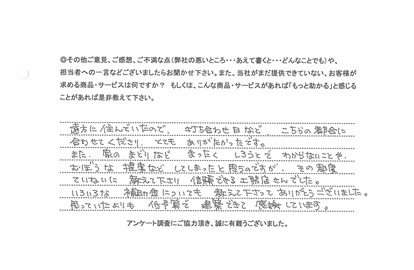 ◎その他ご意見、ご感想、ご不満な点(弊社の悪いところ・・・あえて書くと・・・どんなことでも)や、
担当者への一言などございましたらお聞かせ下さい。また、当社がまだ提供できていない、お客様が
求める商品・サービスは何ですか? もしくは、こんな商品・サービスがあれば「もっと助かる」と感じる
ことがあれば是非教えて下さい。
遠方に住んでいたので、打ち合わせ日など、こちらの都合に
合わせてくださり、とてもありがたかったです。
また、家のまどりなど まったく しろうとで わからないことや、
おぼうな 提案など してしまったと思うのですが、その都度
ていねいに 教えて下さり 信頼できる工務店さんでした。
いろいろな 補助金についても 教えて下さって ありがとうございました。
思っていたよりも 低予算で 建築できて 感謝しています。
アンケート調査にご協力頂き、誠に有難うございました。